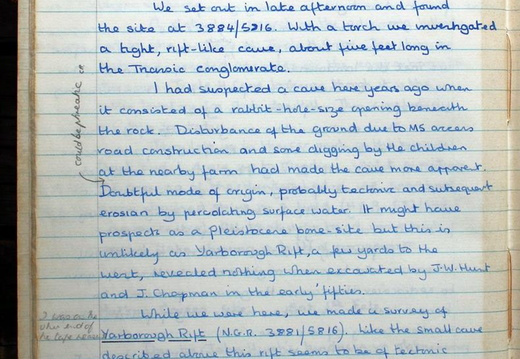 We set out in late afternoon and found
the site at 3884/5816. With a torch we investigated
a tight, rift-like cave, about five feet long in
the Triassic conglomerate.
I had suspected a cave here years ago when
it consisted of a rabbit-hole-size opening beneath
the rock. Disturbance of the ground due to M5 access
road construction and some digging by the children
at the nearby farm had made the cave more apparent.
could be phreatic
Doubtful mode of origin, probably tectonic and subsequent
erosion by percolating surface water. It might have
prospects as a Pleistocene bone-site but this is
unlikely as Yarborough Rift, a few yards to the
west, revealed nothing when excavated by J.W. Hunt
and J. Chapman in the early 'fifties.
While we were here, we made a survey of
Yarborough Rift (N.G.R. 3881/5816). Like the small cave
described above this rift seems to be of tectonic
I was on the
other end of
the tape